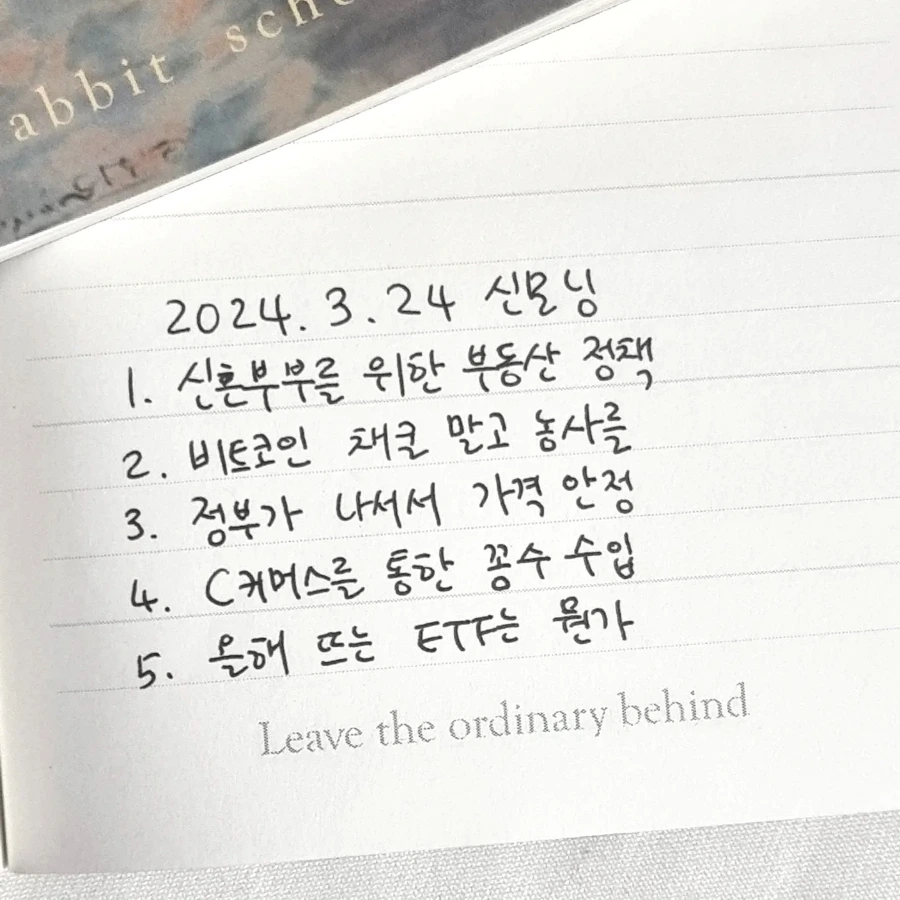 abbit sch
2024. 3. 24 신모닝
1. 신혼부부를 위한 부동산 정책
2. 비트코인 채굴 말고 농사를
3. 정부가 나서서 가격 안정
4. C커머스를 통한 꽁수 수입
5. 올해 뜨는 ETF는 뭔가
Leave the ordinary behind